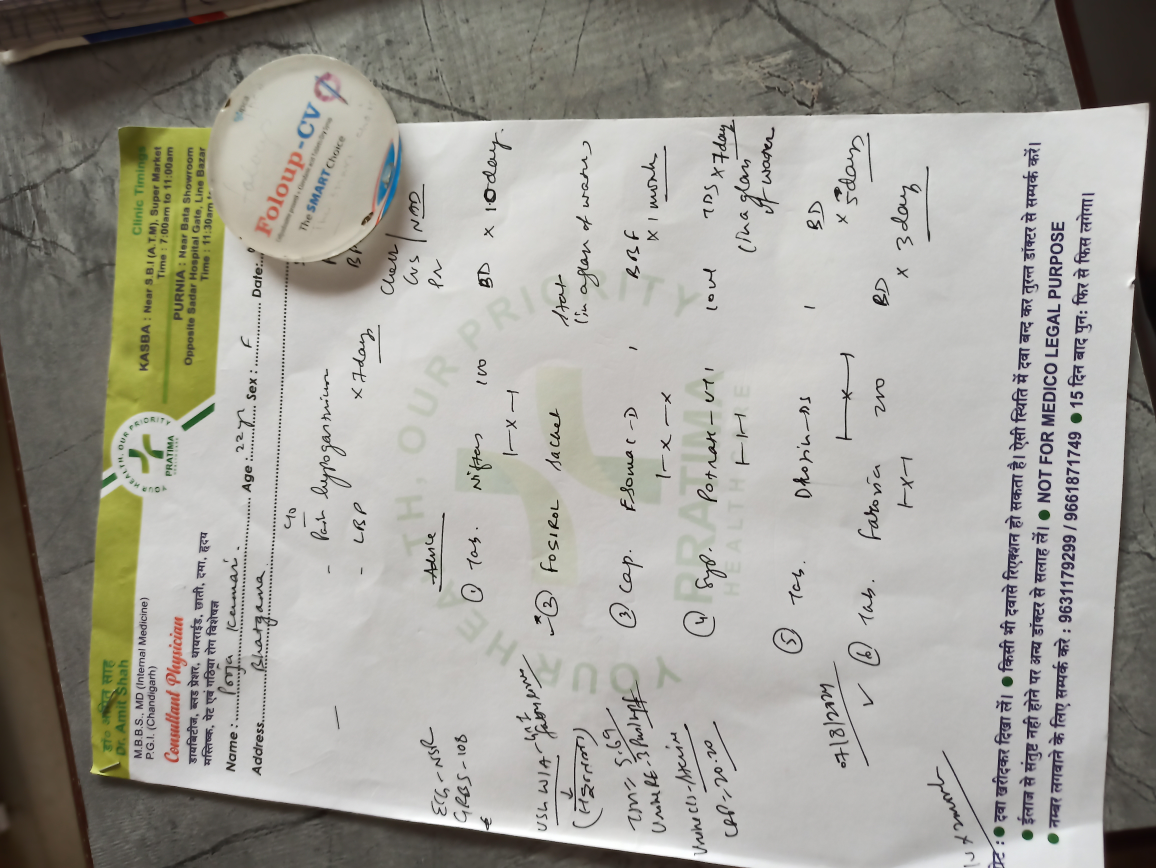 डा० अमित साह
Dr. Amit Shah
M.B.B.S., MD (Internal Medicine)
P.G.I. (Chandigarh)
Consultant Physician
डायबिटीज, ब्लड प्रेशर, थायराईड, छाती, दमा, हृदय
मस्तिष्क, पेट एवं गठिया रोग विशेषज्ञ
YOUR HEALTH, OUR PRIORITY
PRATIMA
Clinic Timings
KASBA : Near S.B.I (A.T.M), Super Market
Time : 7:00am to 11:00am
PURNIA : Near Bata Showroom
Opposite Sadar Hospital Gate, Line Bazar
Time : 11:30am
Foloup-CV
The SMART Choice
Name : Pooja Kumari. Age : 22yr Sex : F Date:
Address Bhatgama
c/o
- Pain hypogastrium
- LBP x 7days
Chest
CVS / NAD
Advice
① Tab. Niftas 100 BD x 10day.
1-x-1
② FOSIROL Sachet Stat
(in a glass of water)
③ Cap. Esomac-D 1 BBF
1-x-x x 1 month
④ Syp. Potrate-UTI 10ml TDS x 7day
1-1-1 (in a glass
of water
⑤ Tab. Drotin-DS 1 BD
1-x-1 x 3days
⑥ Tab. 200 BD x 3day
1-x-1
ECG-NSR
GRBS-108
USG W/A-
CRP-20.20
07/8/2024
YOUR HEALTH, OUR PRIORITY
PRATIMA
HEALTHCARE
● दवा खरीदकर दिखा लें। ● किसी भी दवासे रिएक्शन हो सकता है। ऐसी स्थिति में दवा बन्द कर तुरन्त डॉक्टर से सम्पर्क करें।
● ईलाज से संतुष्ट नही होने पर अन्य डॉक्टर से सलाह लें। ● NOT FOR MEDICO LEGAL PURPOSE
● नम्बर लगवाने के लिए सम्पर्क करे : 9631179299 / 9661871749 ● 15 दिन बाद पुन: फिर से फिस लगेगा।